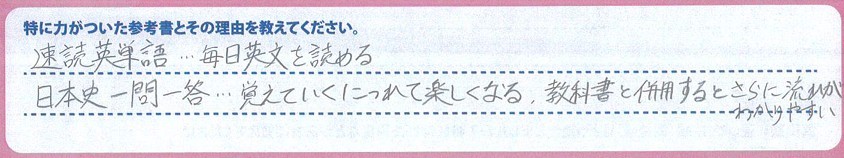 特に力がついた参考書とその理由を教えてください。
速読英単語…毎日英文を読める
日本史一問一答…覚えていくにつれて楽しくなる、教科書と併用するとさらに流れが
わかりやすい